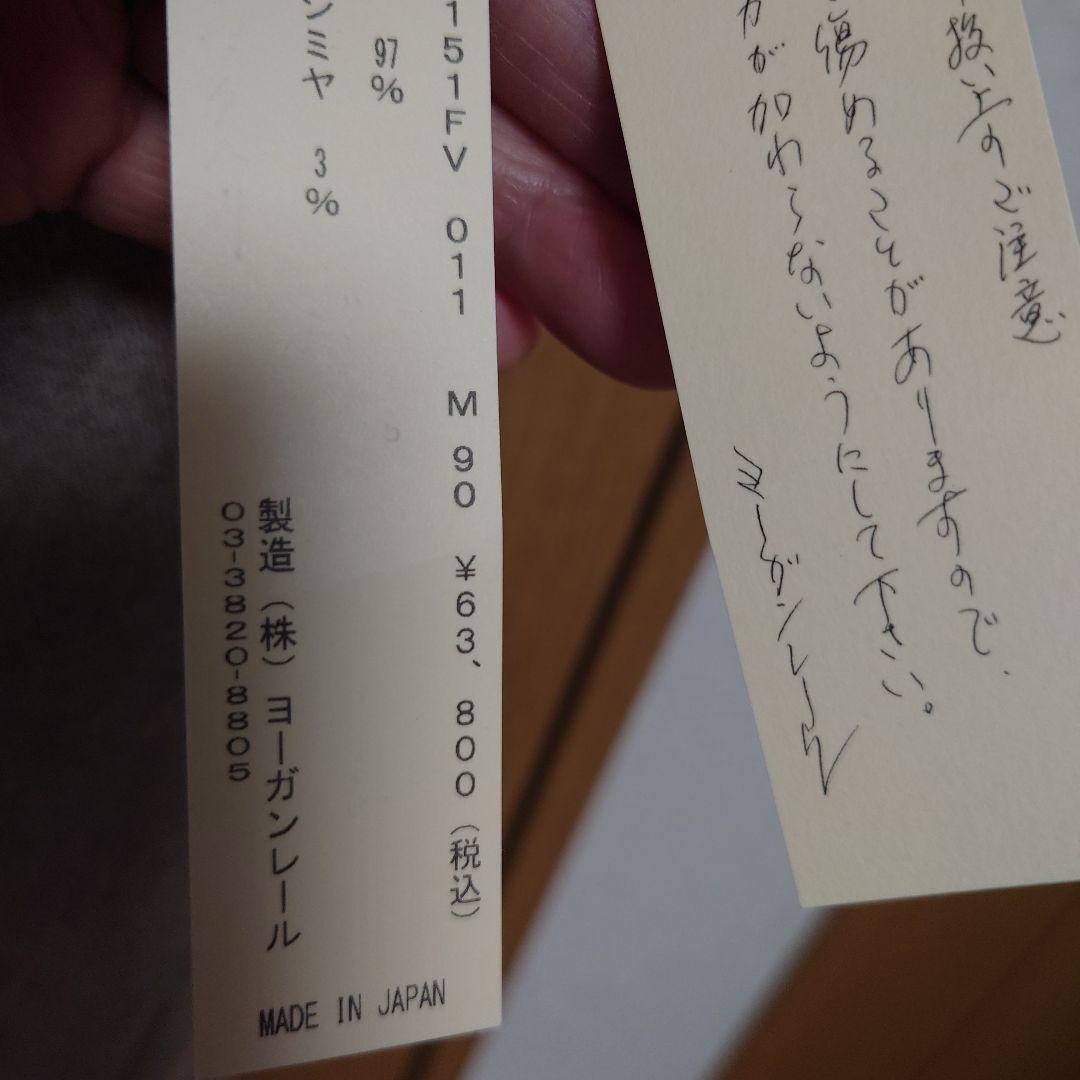 151FV 011 M 90 ¥63、800(税込)
97%
ンミヤ 3%
製造(株)ヨーガンレール
03-3820-8805
MADE IN JAPAN
扱い上のご注意
傷めることがありますので、
力が加わらないようにして下さい。
ヨーガンレール